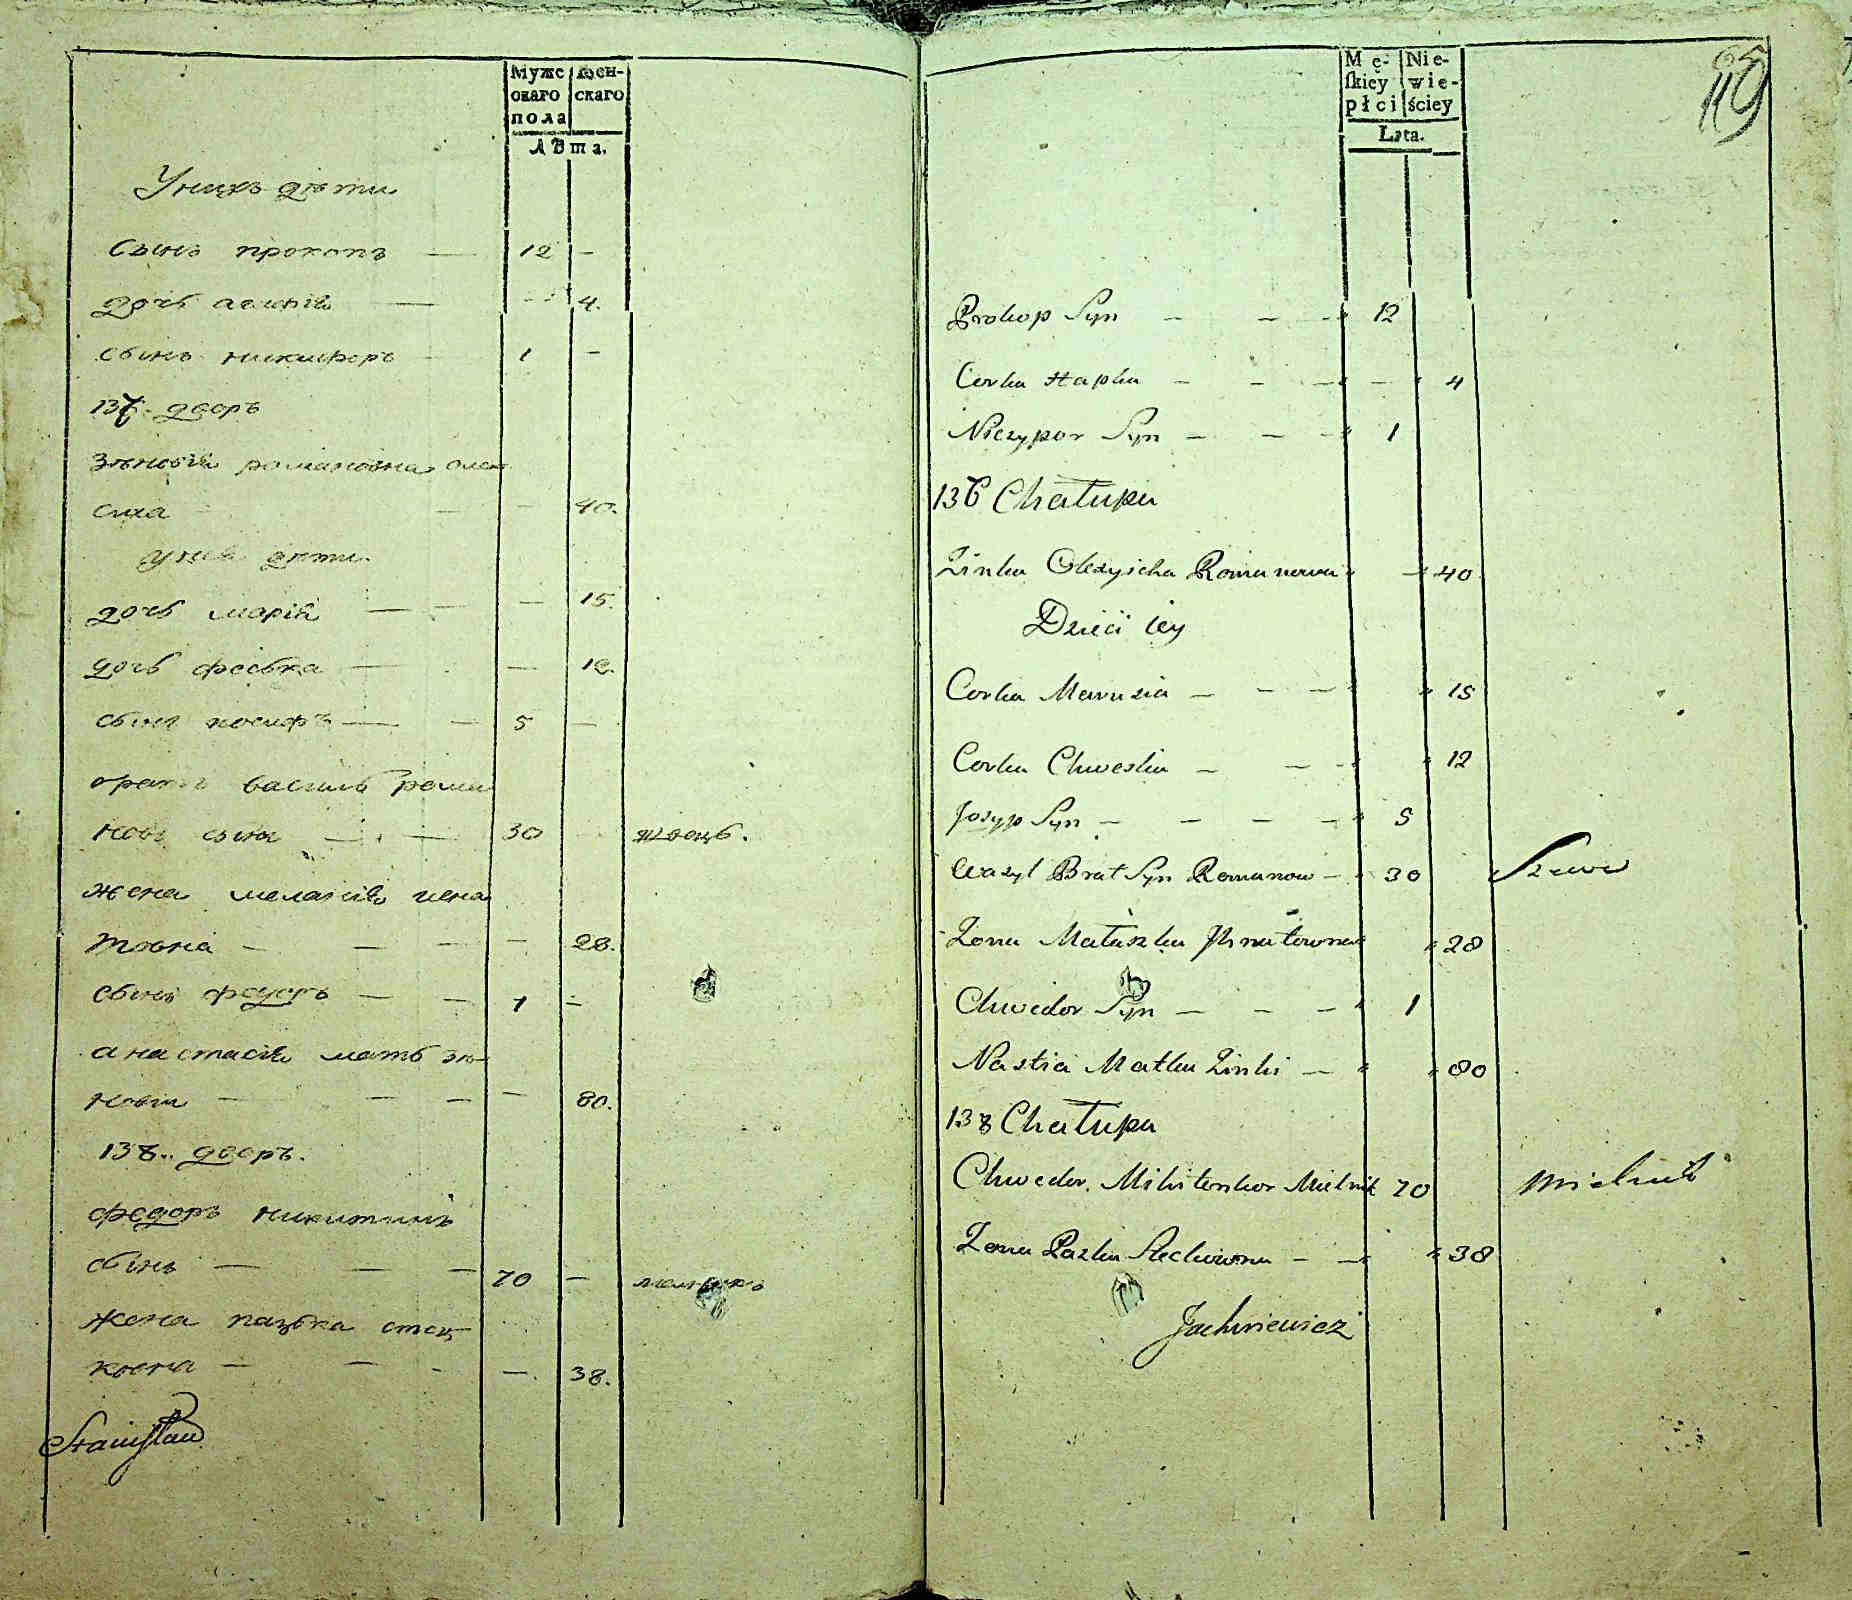 Муже
скаго
пола
жен-
скаго
Лѣта.
У нихъ дѣти
сынъ прокопъ — 12 —
дочь агапія — -- 4.
сынъ никифоръ — 1 —
137. дворъ
Зѣновія романовна олек
сиха — — — 40.
у неё дѣти
дочь марія — — — 15.
дочь феська — — 12.
сынъ иосифъ — — 5 —
братъ василь рома
новъ сынъ — — 30 швецъ.
жена меланія игна
товна — — — — 28.
сынъ федоръ — — 1 —
анастасія мать зѣ-
новіи — — — — 80.
138. дворъ.
федоръ никитинъ
сынъ — — — 70 — мельникъ
жена пазька стец
ковна — — - — 38.
Stanisław
119
Mę-
skiey
płci
Nie-
wie-
ściey
Lata.
Prokop Syn — — — 12
Corka Hapka — — — — 4
Niczypor Syn — — — 1
137 Chałupa
Zinka Olexyicha Romanowa — 40
Dzieci iey
Corka Marusia — — — 15
Corka Chweska — — — 12
Josyp Syn — — — — 5
Wasyl Brat Syn Romanow — 30 Szewc
Zona Małaszka Ihnatowna 28
Chwedor Syn — — — 1
Nastia Matka Zinki — 80
138 Chałupa
Chwedor Mikitenkow Mielnik 70 Mielnik
Zona Pazka Stećkowna — — 38
Jachniewicz